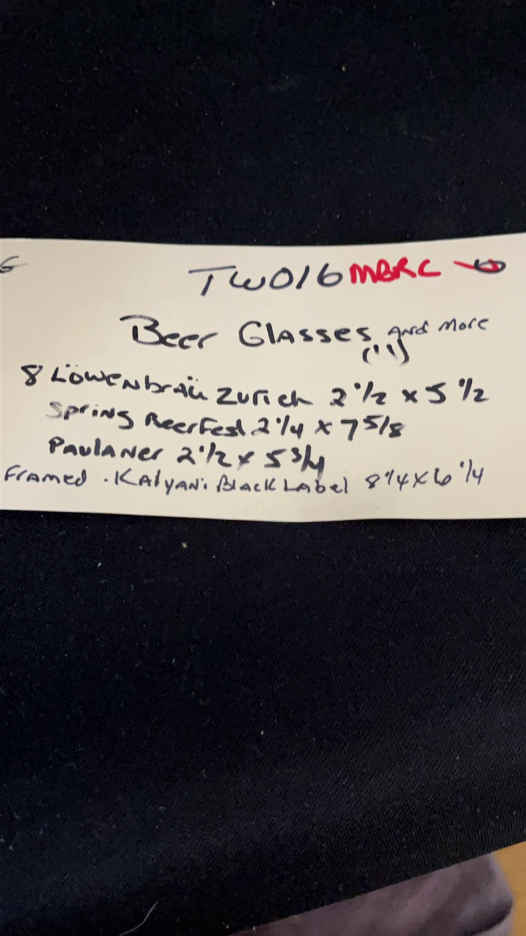 TW016 MBRC
Beer Glasses and More
(11)
8 Löwenbräu Zurich 2 1/2 x 5 1/2
Spring Beerfest 2 1/4 x 7 5/8
Paulaner 2 1/2 x 5 3/4
Framed . Kalyani Black Label 8 1/4 x 6 1/4